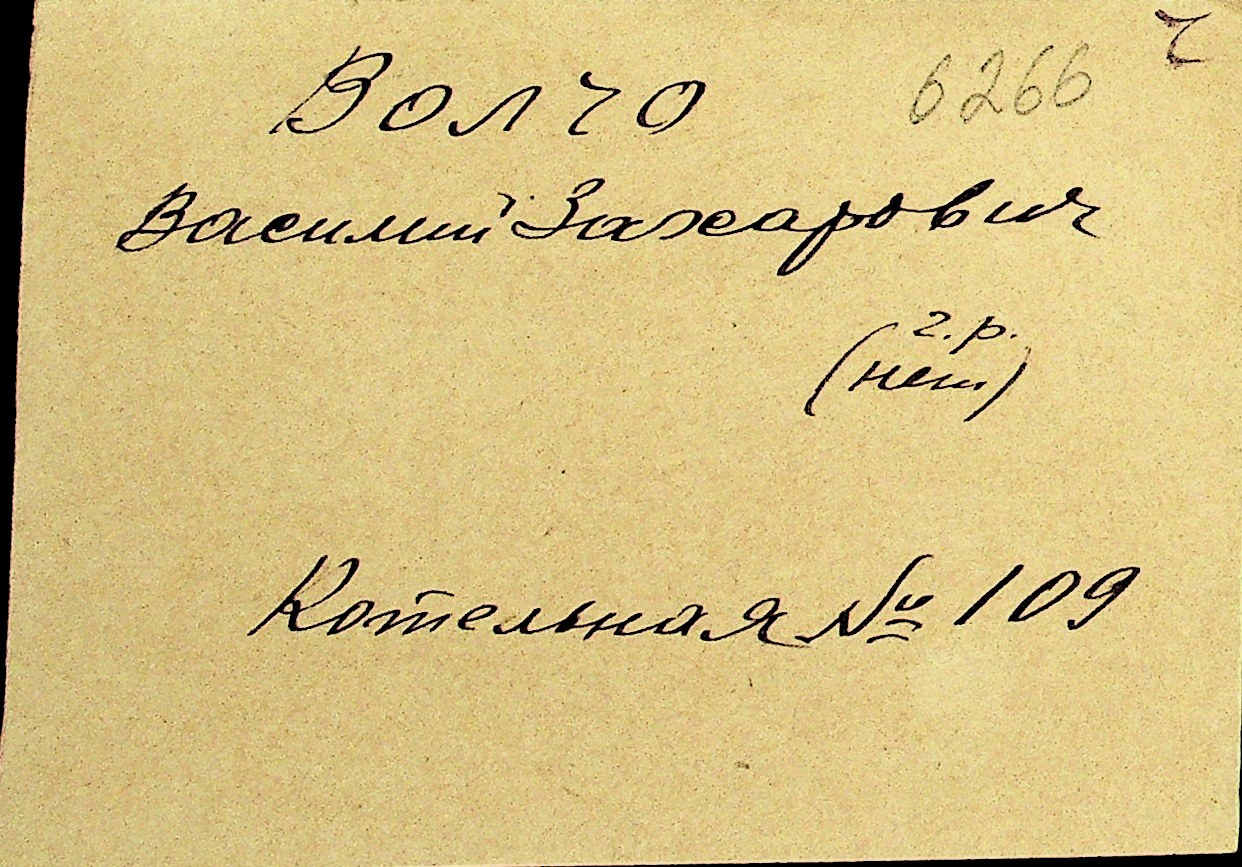 ч
Волчо 6266
Василий Захарович
г.р.
(нет)
Котельная № 109